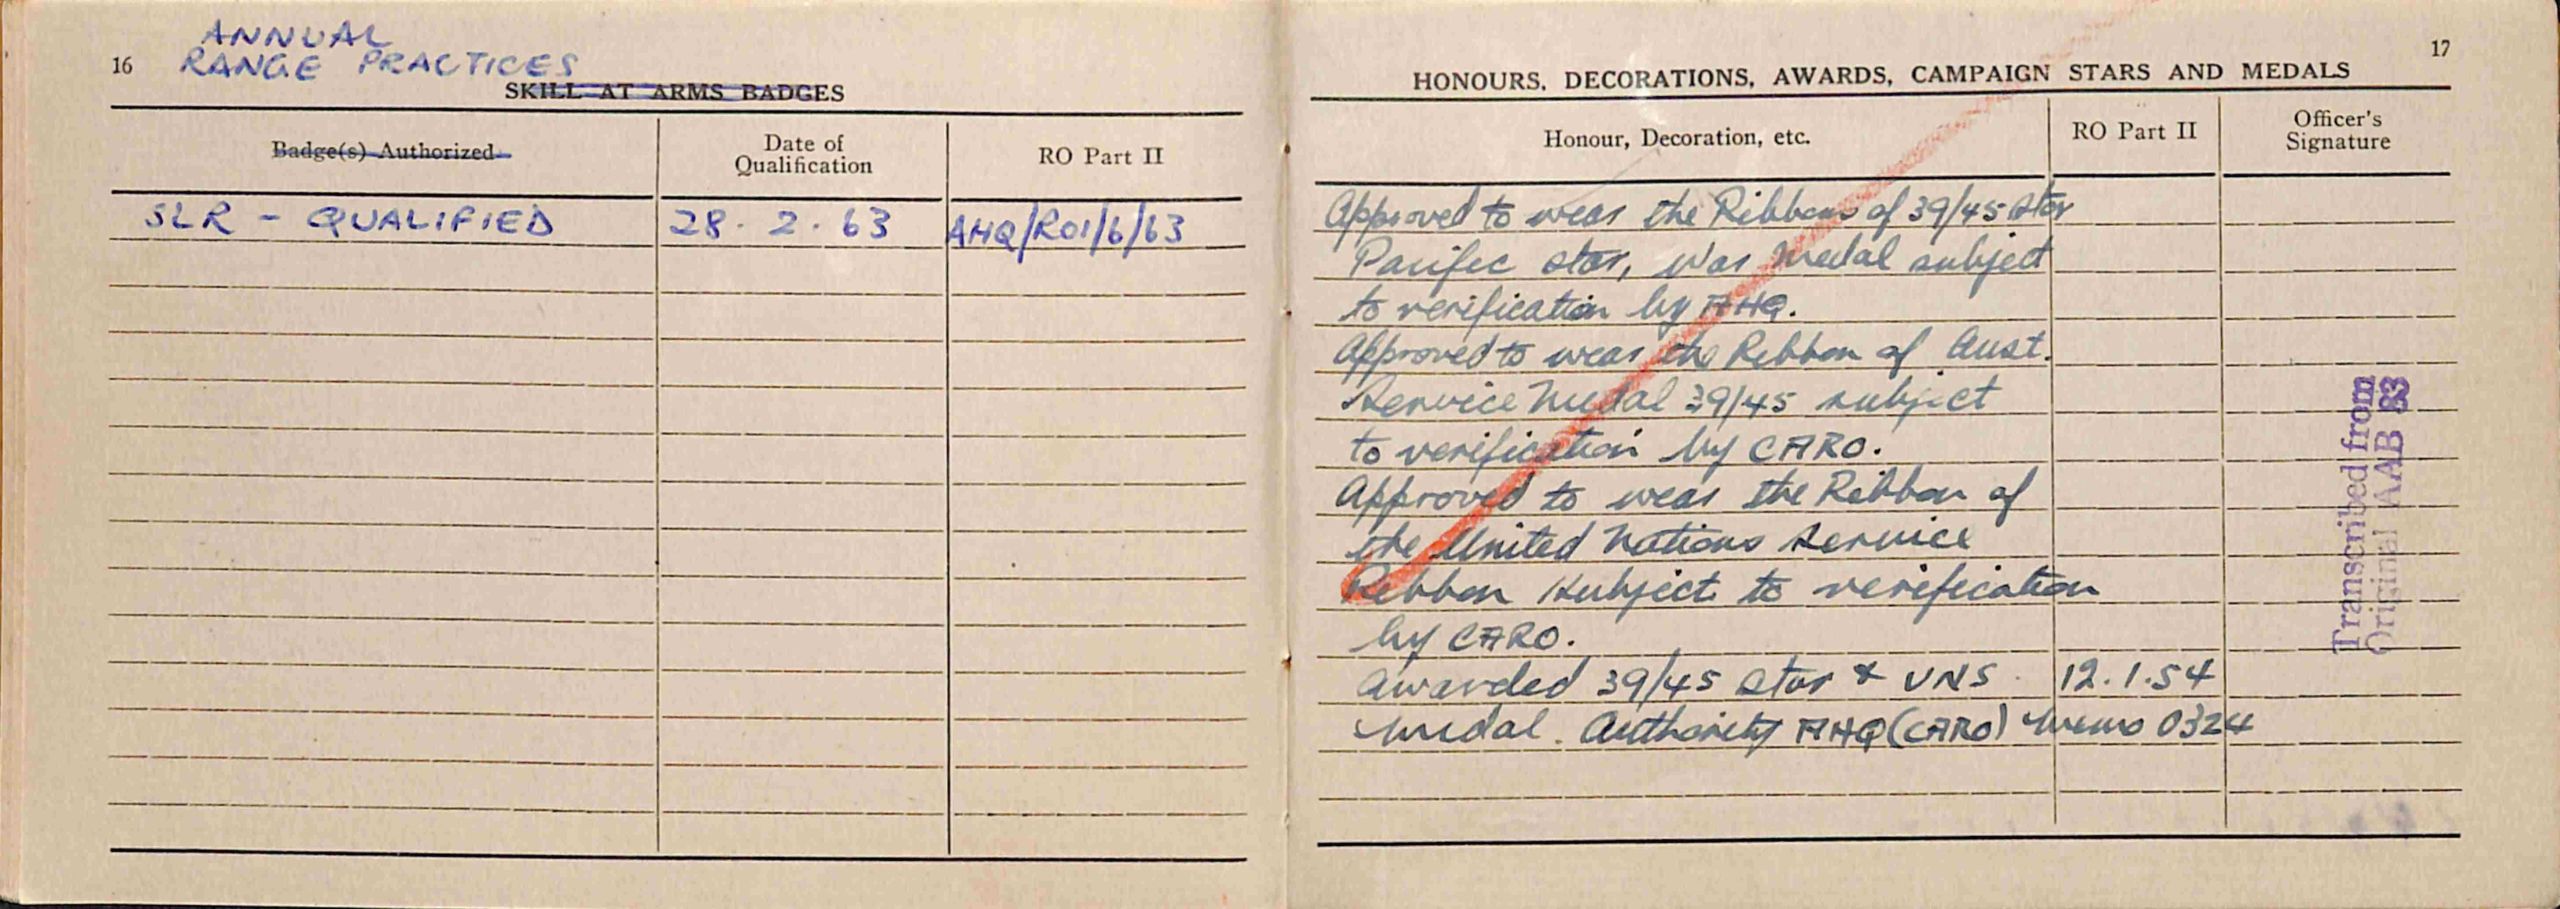 16
ANNUAL
RANGE PRACTICES
SKILL AT ARMS BADGES
Badge(s) Authorized
Date of
Qualification
RO Part II
SLR - QUALIFIED 28.2.63 AHQ/RO1/6/63
17
HONOURS, DECORATIONS, AWARDS, CAMPAIGN STARS AND MEDALS
Honour, Decoration, etc.
RO Part II
Officer's
Signature
Approved to wear the Ribbons of 39/45 Star
Pacific Star, War Medal subject
to verification by AHQ.
Approved to wear the Ribbon of Aust.
Service Medal 39/45 subject
to verification by CARO.
Approved to wear the Ribbon of
the United Nations Service
Ribbon subject to verification
by CARO.
Awarded 39/45 Star & UNS 12.1.54
Medal. Authority AHQ (CARO) Memo 0324
Transcribed from
Original AAB 83